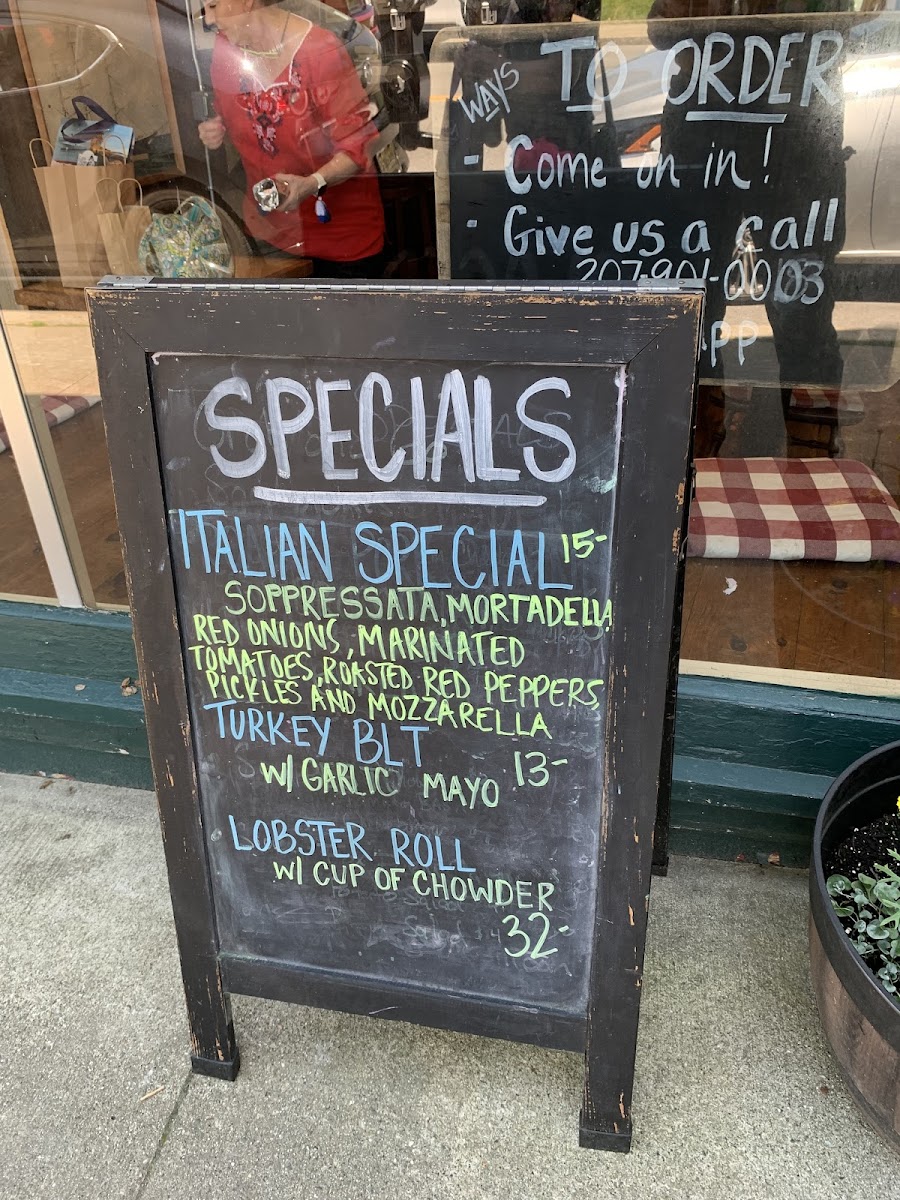 WAYS TO ORDER
- Come on in!
- Give us a call
207-901-0003
PP
SPECIALS
ITALIAN SPECIAL 15-
SOPPRESSATA, MORTADELLA,
RED ONIONS, MARINATED
TOMATOES, ROASTED RED PEPPERS,
PICKLES AND MOZZARELLA
TURKEY BLT
W/ GARLIC MAYO 13-
LOBSTER ROLL
W/ CUP OF CHOWDER
32-